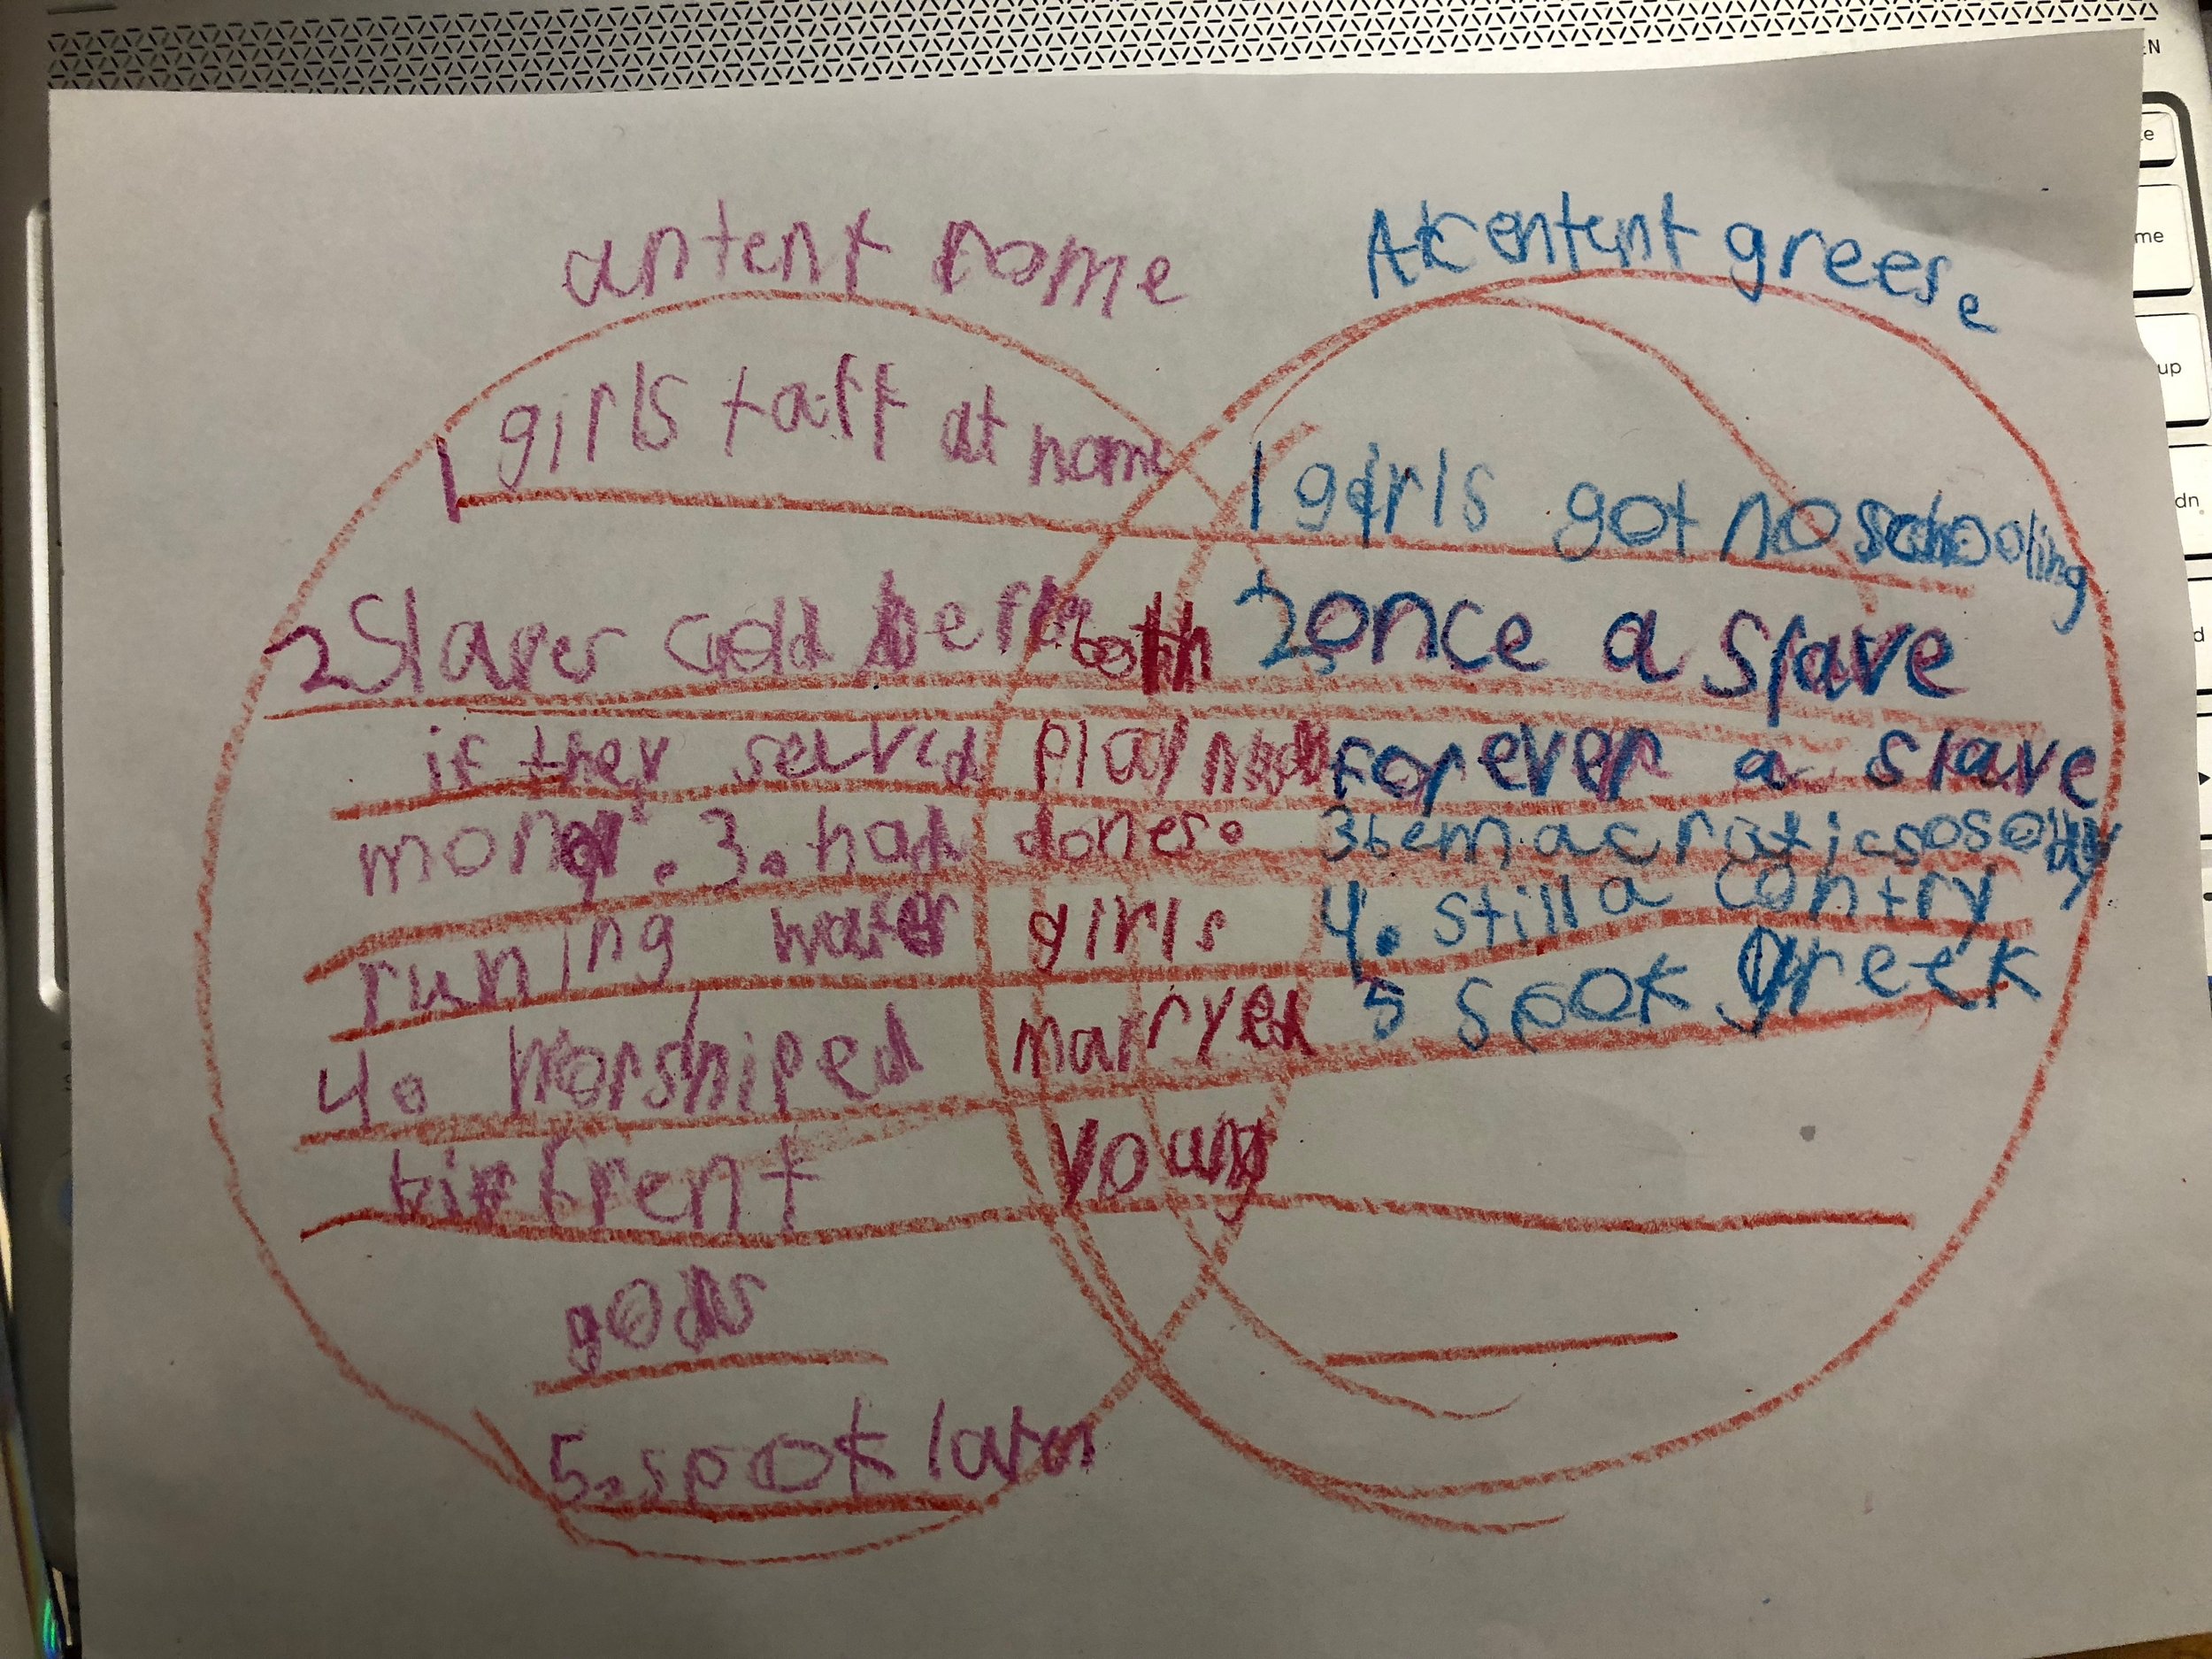 antent rome
Akcentent greese
1 girls taft at home
2 Slaves codd be
if they served
money. 3. had
runing water
4. Worshiped
gods
5. spok laten
both
play
dones.
girls
marryed
young
1 girls got no schooling
2 once a slave
forever a slave
3
4. still a contry
5 spok greek